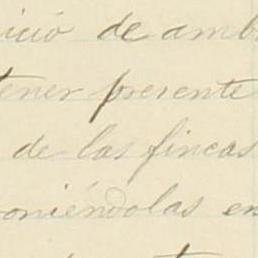 icio de amb
tener presente
de las fincas
oniéndolas en